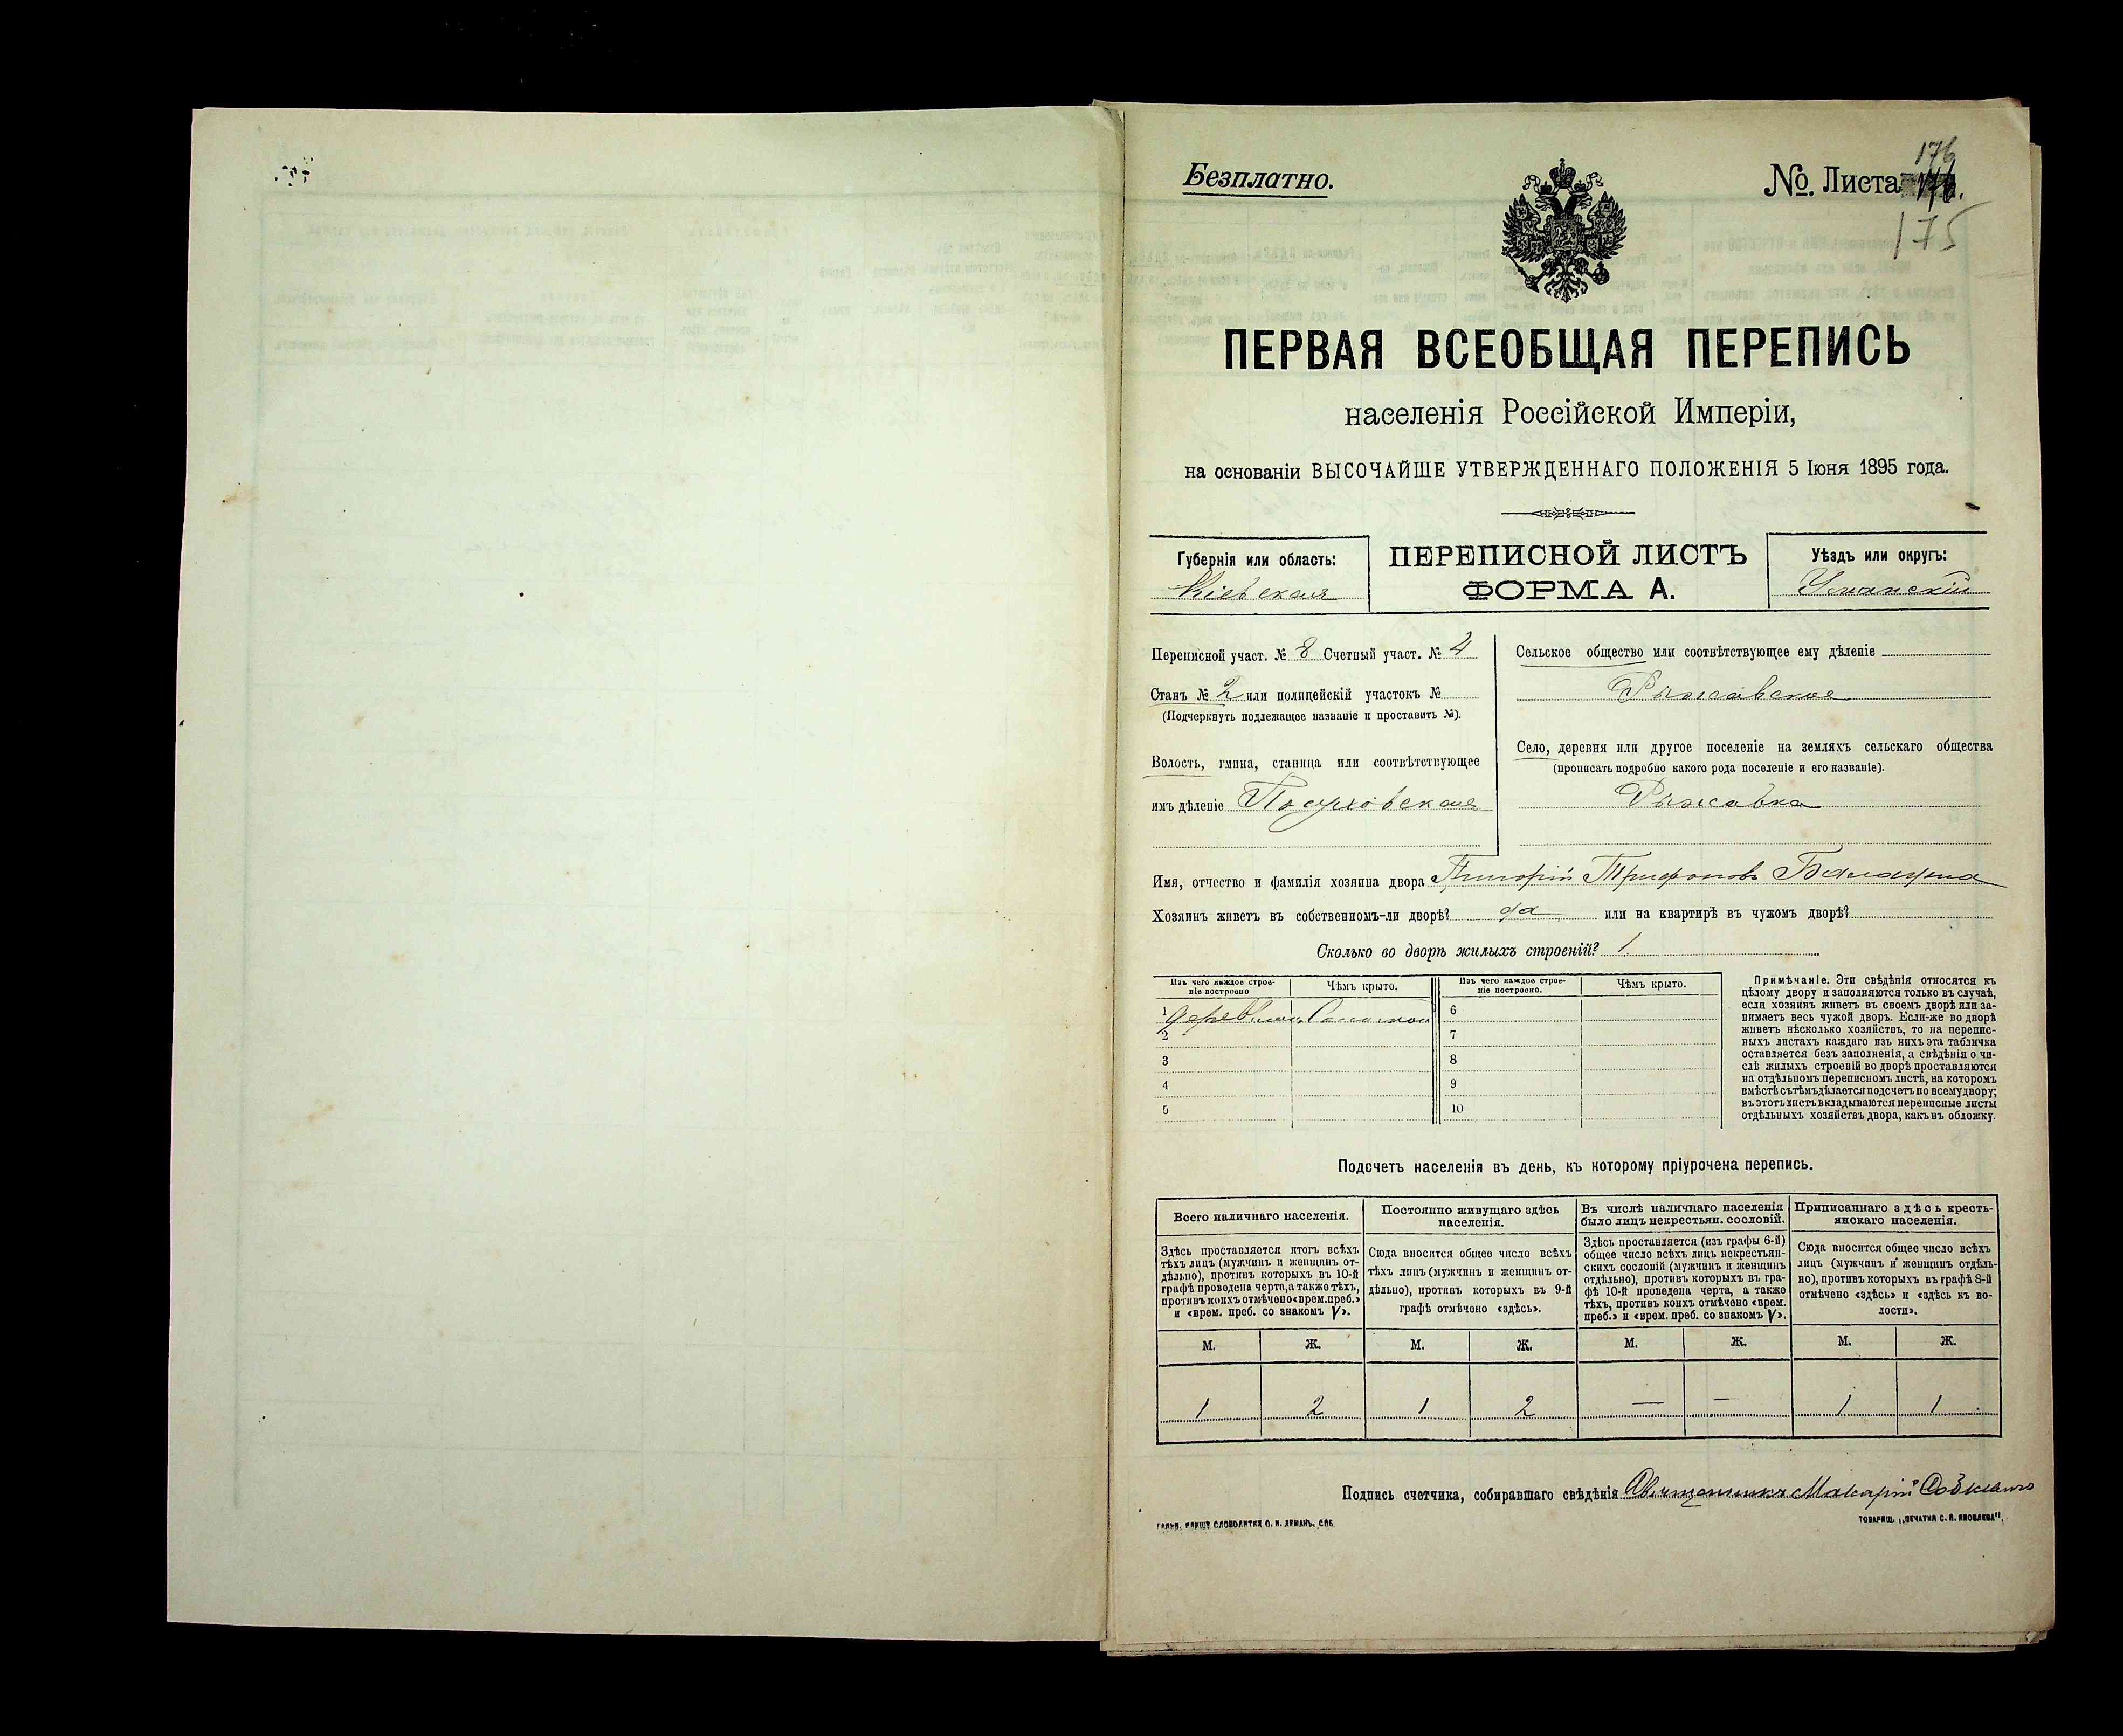 Безплатно.
№. Листа 176.
175
ПЕРВАЯ ВСЕОБЩАЯ ПЕРЕПИСЬ
населенія Россійской Имперіи,
на основаніи ВЫСОЧАЙШЕ УТВЕРЖДЕННАГО ПОЛОЖЕНІЯ 5 Іюня 1895 года.
Губернія или область:
Кіевская
ПЕРЕПИСНОЙ ЛИСТЪ
ФОРМА А.
Уѣздъ или округъ:
Уманскій
Переписной участ. № 8 Счетный участ. № 4
Станъ № 2 или полицейскій участокъ №
(Подчеркнуть подлежащее названіе и проставить №).
Волость, гмина, станица или соотвѣтствующее
имъ дѣленіе
Сельское общество или соотвѣтствующее ему дѣленіе
Рыжавское
Село, деревня или другое поселеніе на земляхъ сельскаго общества
(прописать подробно какого рода поселеніе и его названіе).
Рыжавка
Имя, отчество и фамилія хозяина двора Григорій Трифоновъ
Хозяинъ живетъ въ собственномъ-ли дворѣ? да или на квартирѣ въ чужомъ дворѣ?
Сколько во дворѣ жилыхъ строеній? 1.
Изъ чего каждое строе-
ніе построено
Чѣмъ крыто.
Изъ чего каждое строе-
ніе построено.
Чѣмъ крыто.
1 Соломою
2
3
4
5
6
7
8
9
10
Примѣчаніе. Эти свѣдѣнія относятся къ
цѣлому двору и заполняются только въ случаѣ,
если хозяинъ живетъ въ своемъ дворѣ или за-
нимаетъ весь чужой дворъ. Если-же во дворѣ
живетъ нѣсколько хозяйствъ, то на перепис-
ныхъ листахъ каждаго изъ нихъ эта табличка
оставляется безъ заполненія, а свѣдѣнія о чи-
слѣ жилыхъ строеній во дворѣ проставляются
на отдѣльномъ переписномъ листѣ, на которомъ
вмѣстѣ съ тѣмъ дѣлается подсчетъ по всему двору;
въ этотъ листъ вкладываются переписные листы
отдѣльныхъ хозяйствъ двора, какъ въ обложку.
Подсчетъ населенія въ день, къ которому пріурочена перепись.
Всего наличнаго населенія.
Здѣсь проставляется итогъ всѣхъ
тѣхъ лицъ (мужчинъ и женщинъ от-
дѣльно), противъ которыхъ въ 10-й
графѣ проведена черта, а также тѣхъ,
противъ коихъ отмѣчено «врем. преб.»
и «врем. преб. со знакомъ V».
Постоянно живущаго здѣсь
населенія.
Сюда вносится общее число всѣхъ
тѣхъ лицъ (мужчинъ и женщинъ от-
дѣльно), противъ которыхъ въ 9-й
графѣ отмѣчено «здѣсь».
Въ числѣ наличнаго населенія
было лицъ некрестьян. сословій.
Здѣсь проставляется (изъ графы 6-й)
общее число всѣхъ лицъ некрестьян-
скихъ сословій (мужчинъ и женщинъ
отдѣльно), противъ которыхъ въ гра-
фѣ 10-й проведена черта, а также
тѣхъ, противъ коихъ отмѣчено «врем.
преб.» и «врем. преб. со знакомъ V».
Приписаннаго здѣсь кресть-
янскаго населенія.
Сюда вносится общее число всѣхъ
лицъ (мужчинъ и женщинъ отдѣль-
но), противъ которыхъ въ графѣ 8-й
отмѣчено «здѣсь» и «здѣсь къ во-
лости».
М. Ж. М. Ж. М. Ж. М. Ж.
1 2 1 2 — — 1 1
Подпись счетчика, собиравшаго свѣдѣнія Священникъ Макарій
ТОВАРИЩ. „ПЕЧАТНЯ С. П. ЯКОВЛЕВА".